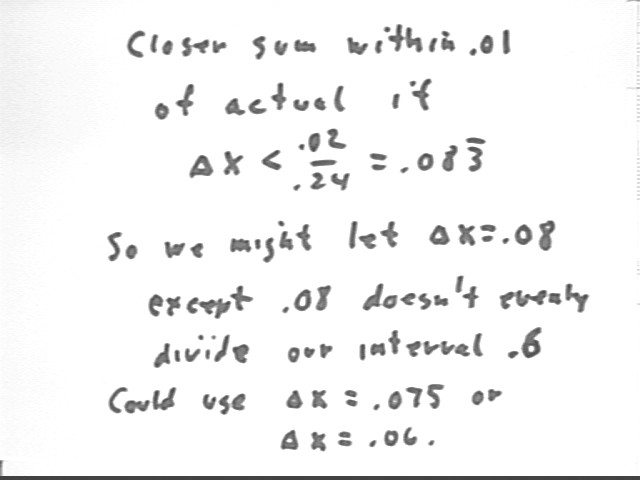 Closer sum within .01
of actual if
Δx < .02/.24 = .083̅
So we might let Δx=.08
except .08 doesn't evenly
divide our interval .6
Could use Δx = .075 or
Δx = .06.